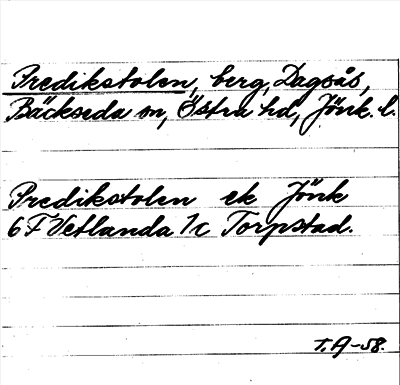 Predikstolen, berg, Dagsås,
Bäckseda sn, Östra hd, Jönk. l.
Predikstolen ek Jönk
6 F Vetlanda 1c Torpstad.
T. A-58.